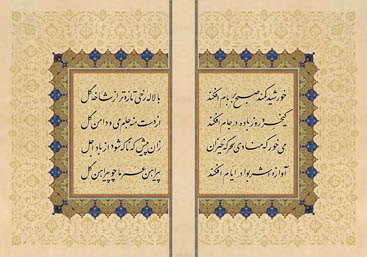 خورشید کمند صبح بر بام افکند
کیخسرو روز باده در جام افکند
می خور که منادی سحرگه خیزان
آوازهٔ اشربوا در ایام افکند
با لاله رخی تازه تر از شاخه گل
از دست منه جام می و دامن گل
زان پیش که ناگه شود از باد اجل
پیراهن عمر ما چو پیراهن گل